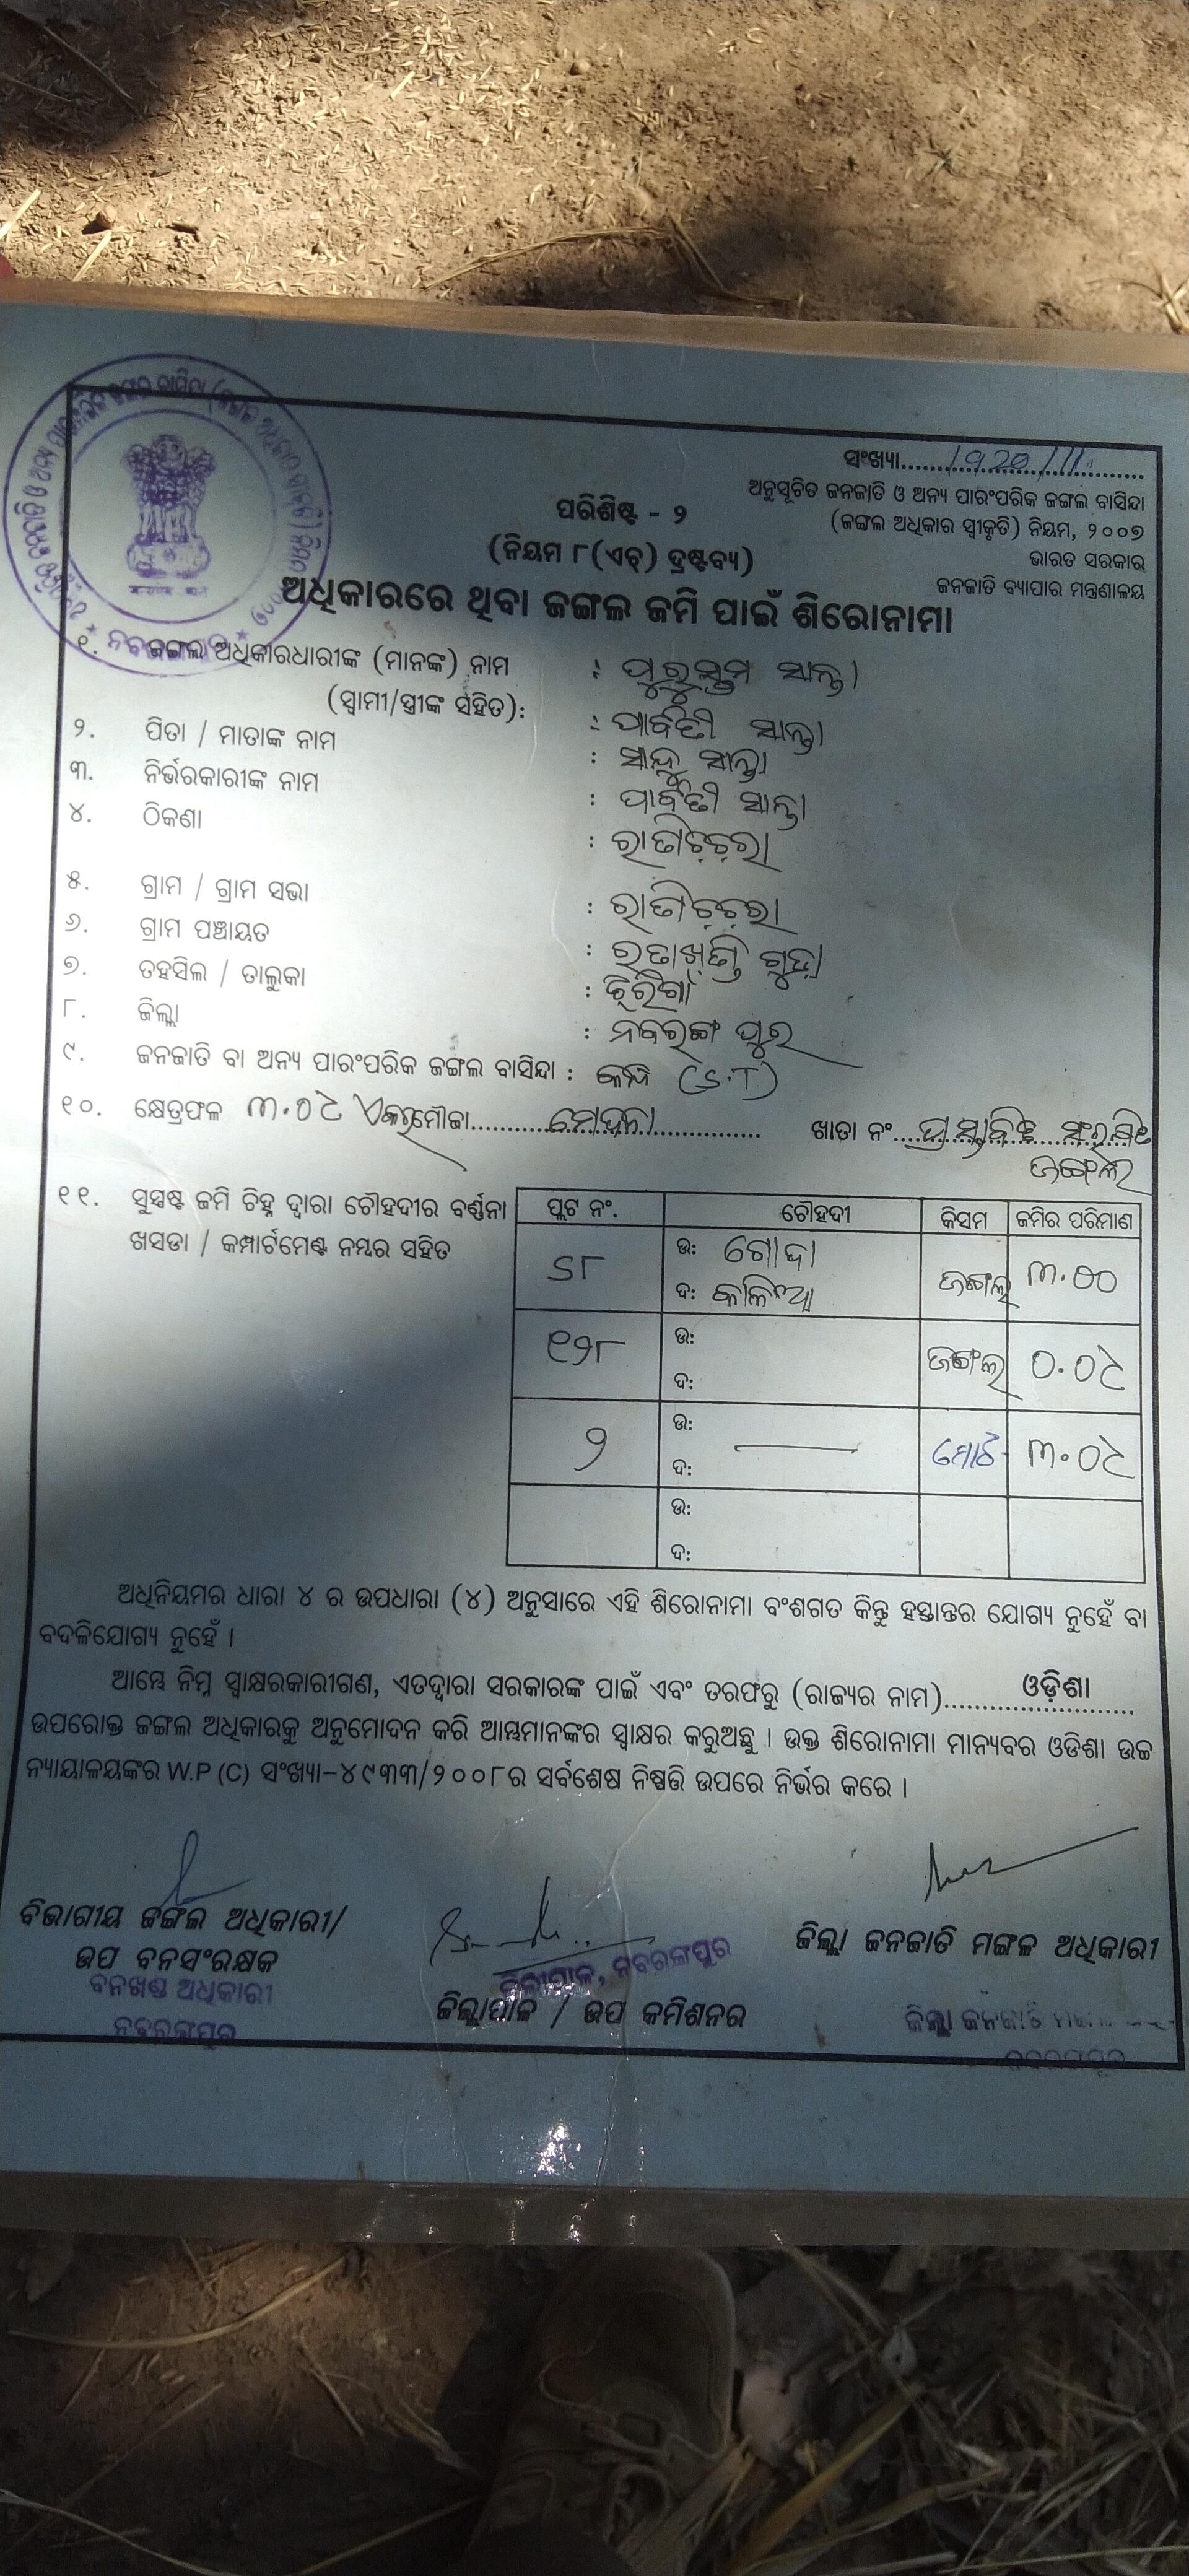 ସଂଖ୍ୟା..........1920/11..........
ଅନୁସୂଚିତ ଜନଜାତି ଓ ଅନ୍ୟ ପାରଂପରିକ ଜଙ୍ଗଲ ବାସିନ୍ଦା
(ଜଙ୍ଗଲ ଅଧିକାର ସ୍ୱୀକୃତି) ନିୟମ, ୨୦୦୭
ଭାରତ ସରକାର
ଜନଜାତି ବ୍ୟାପାର ମନ୍ତ୍ରଣାଳୟ
ପରିଶିଷ୍ଟ - ୨
(ନିୟମ ୮(ଏଚ୍) ଦ୍ରଷ୍ଟବ୍ୟ)
ଅଧିକାରରେ ଥିବା ଜଙ୍ଗଲ ଜମି ପାଇଁ ଶିରୋନାମା
୧. ଜଙ୍ଗଲ ଅଧିକାରଧାରୀଙ୍କ (ମାନଙ୍କ) ନାମ : ପୁରୁସ୍ତମ ସାନ୍ତା
(ସ୍ୱାମୀ/ସ୍ତ୍ରୀଙ୍କ ସହିତ): : ପାର୍ବତୀ ସାନ୍ତା
୨. ପିତା / ମାତାଙ୍କ ନାମ : ସାନ୍ଦୁ ସାନ୍ତା
୩. ନିର୍ଭରକାରୀଙ୍କ ନାମ : ପାର୍ବତୀ ସାନ୍ତା
୪. ଠିକଣା :
୫. ଗ୍ରାମ / ଗ୍ରାମ ସଭା :
୬. ଗ୍ରାମ ପଞ୍ଚାୟତ : ଗୁଡ଼ା
୭. ତହସିଲ / ତାଲୁକା : ଝରିଗାଁ
୮. ଜିଲ୍ଲା : ନବରଙ୍ଗ ପୁର
୯. ଜନଜାତି ବା ଅନ୍ୟ ପାରଂପରିକ ଜଙ୍ଗଲ ବାସିନ୍ଦା : କନ୍ଧ (S.T)
୧୦. କ୍ଷେତ୍ରଫଳ ୩.୦୯ ଏକର ମୌଜା.......... ଖାତା ନଂ.... ପ୍ରସ୍ତାବିତ ସଂରକ୍ଷିତ
ଜଙ୍ଗଲ
୧୧. ସୁସ୍ପଷ୍ଟ ଜମି ଚିହ୍ନ ଦ୍ୱାରା ଚୌହଦୀର ବର୍ଣ୍ଣନା
ଖସଡା / କମ୍ପାର୍ଟମେଣ୍ଟ ନମ୍ବର ସହିତ
ପ୍ଲଟ ନଂ. ଚୌହଦୀ କିସମ ଜମିର ପରିମାଣ
୪୮ ଉ: ଗୋଦା ଜଙ୍ଗଲ ୩.୦୦
ଦ: କାଳିଆ
୧୨୮ ଉ: ଜଙ୍ଗଲ ୦.୦୯
ଦ:
୨ ଉ: ମୋଟ ୩.୦୯
ଦ:
ଉ:
ଦ:
ଅଧିନିୟମର ଧାରା ୪ ର ଉପଧାରା (୪) ଅନୁସାରେ ଏହି ଶିରୋନାମା ବଂଶଗତ କିନ୍ତୁ ହସ୍ତାନ୍ତର ଯୋଗ୍ୟ ନୁହେଁ ବା
ବଦଳିଯୋଗ୍ୟ ନୁହେଁ ।
ଆମ୍ଭେ ନିମ୍ନ ସ୍ୱାକ୍ଷରକାରୀଗଣ, ଏତଦ୍ୱାରା ସରକାରଙ୍କ ପାଇଁ ଏବଂ ତରଫରୁ (ରାଜ୍ୟର ନାମ)..........ଓଡ଼ିଶା..........
ଉପରୋକ୍ତ ଜଙ୍ଗଲ ଅଧିକାରକୁ ଅନୁମୋଦନ କରି ଆମ୍ଭମାନଙ୍କର ସ୍ୱାକ୍ଷର କରୁଅଛୁ । ଉକ୍ତ ଶିରୋନାମା ମାନ୍ୟବର ଓଡିଶା ଉଚ୍ଚ
ନ୍ୟାୟାଳୟଙ୍କର W.P (C) ସଂଖ୍ୟା-୪୯୩୩/୨୦୦୮ର ସର୍ବଶେଷ ନିଷ୍ପତ୍ତି ଉପରେ ନିର୍ଭର କରେ ।
ବିଭାଗୀୟ ଜଙ୍ଗଲ ଅଧିକାରୀ/
ଉପ ବନସଂରକ୍ଷକ
ବନଖଣ୍ଡ ଅଧିକାରୀ
ନବରଙ୍ଗପୁର
ଜିଲ୍ଲାପାଳ, ନବରଙ୍ଗପୁର
ଜିଲ୍ଲାପାଳ / ଉପ କମିଶନର
ଜିଲ୍ଲା ଜନଜାତି ମଙ୍ଗଳ ଅଧିକାରୀ
ଜିଲ୍ଲା ଜନଜାତି
ନବରଙ୍ଗପୁର